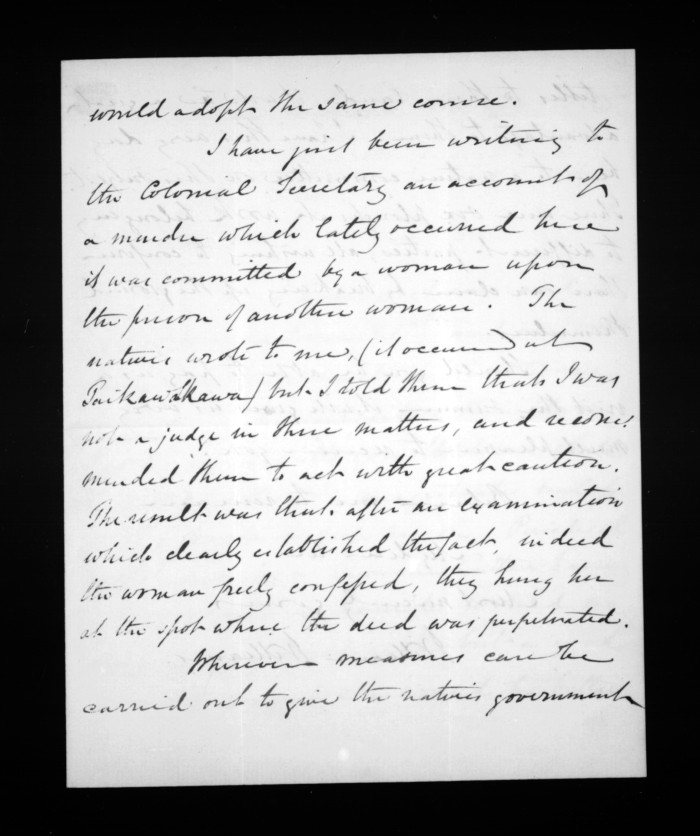 would adopt the same course.
I have just been writing to
the Colonial Secretary an account of
a murder which lately occurred here
it was committed by a woman upon
the person of another woman. The
natives wrote to me, (it occurred at
but I told them that I was
not a judge in these matters, and recom-
mended them to act with great caution.
The result was that after an examination
which clearly established the fact, indeed
the woman freely confessed, they hung her
at the spot where the deed was perpetrated.
Wherever measures can be
carried out to give the natives government